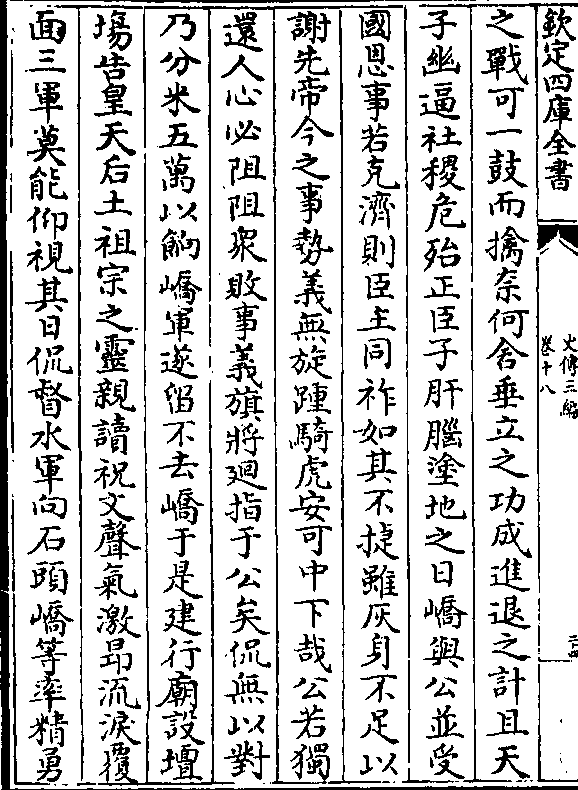 欽定四庫全書
史傳三編
卷十八
之戰可一鼓而擒奈何舍垂立之功成進退之計且天
子幽逼社稷危殆正臣子肝腦塗地之日嶠與公並受
國恩事若克濟則臣主同祚如其不捷雖灰身不足以
謝先帝今之事勢義無旋踵騎虎安可中下哉公若獨
還人心必阻阻衆敗事義旗將廻指于公矣侃無以對
乃分米五萬以餉嶠軍遂留不去嶠于是建行廟設壇
塲告皇天后土祖宗之靈親讀祝文聲氣激昂流淚覆
面三軍莫能仰視其日侃督水軍向石頭嶠等率精勇